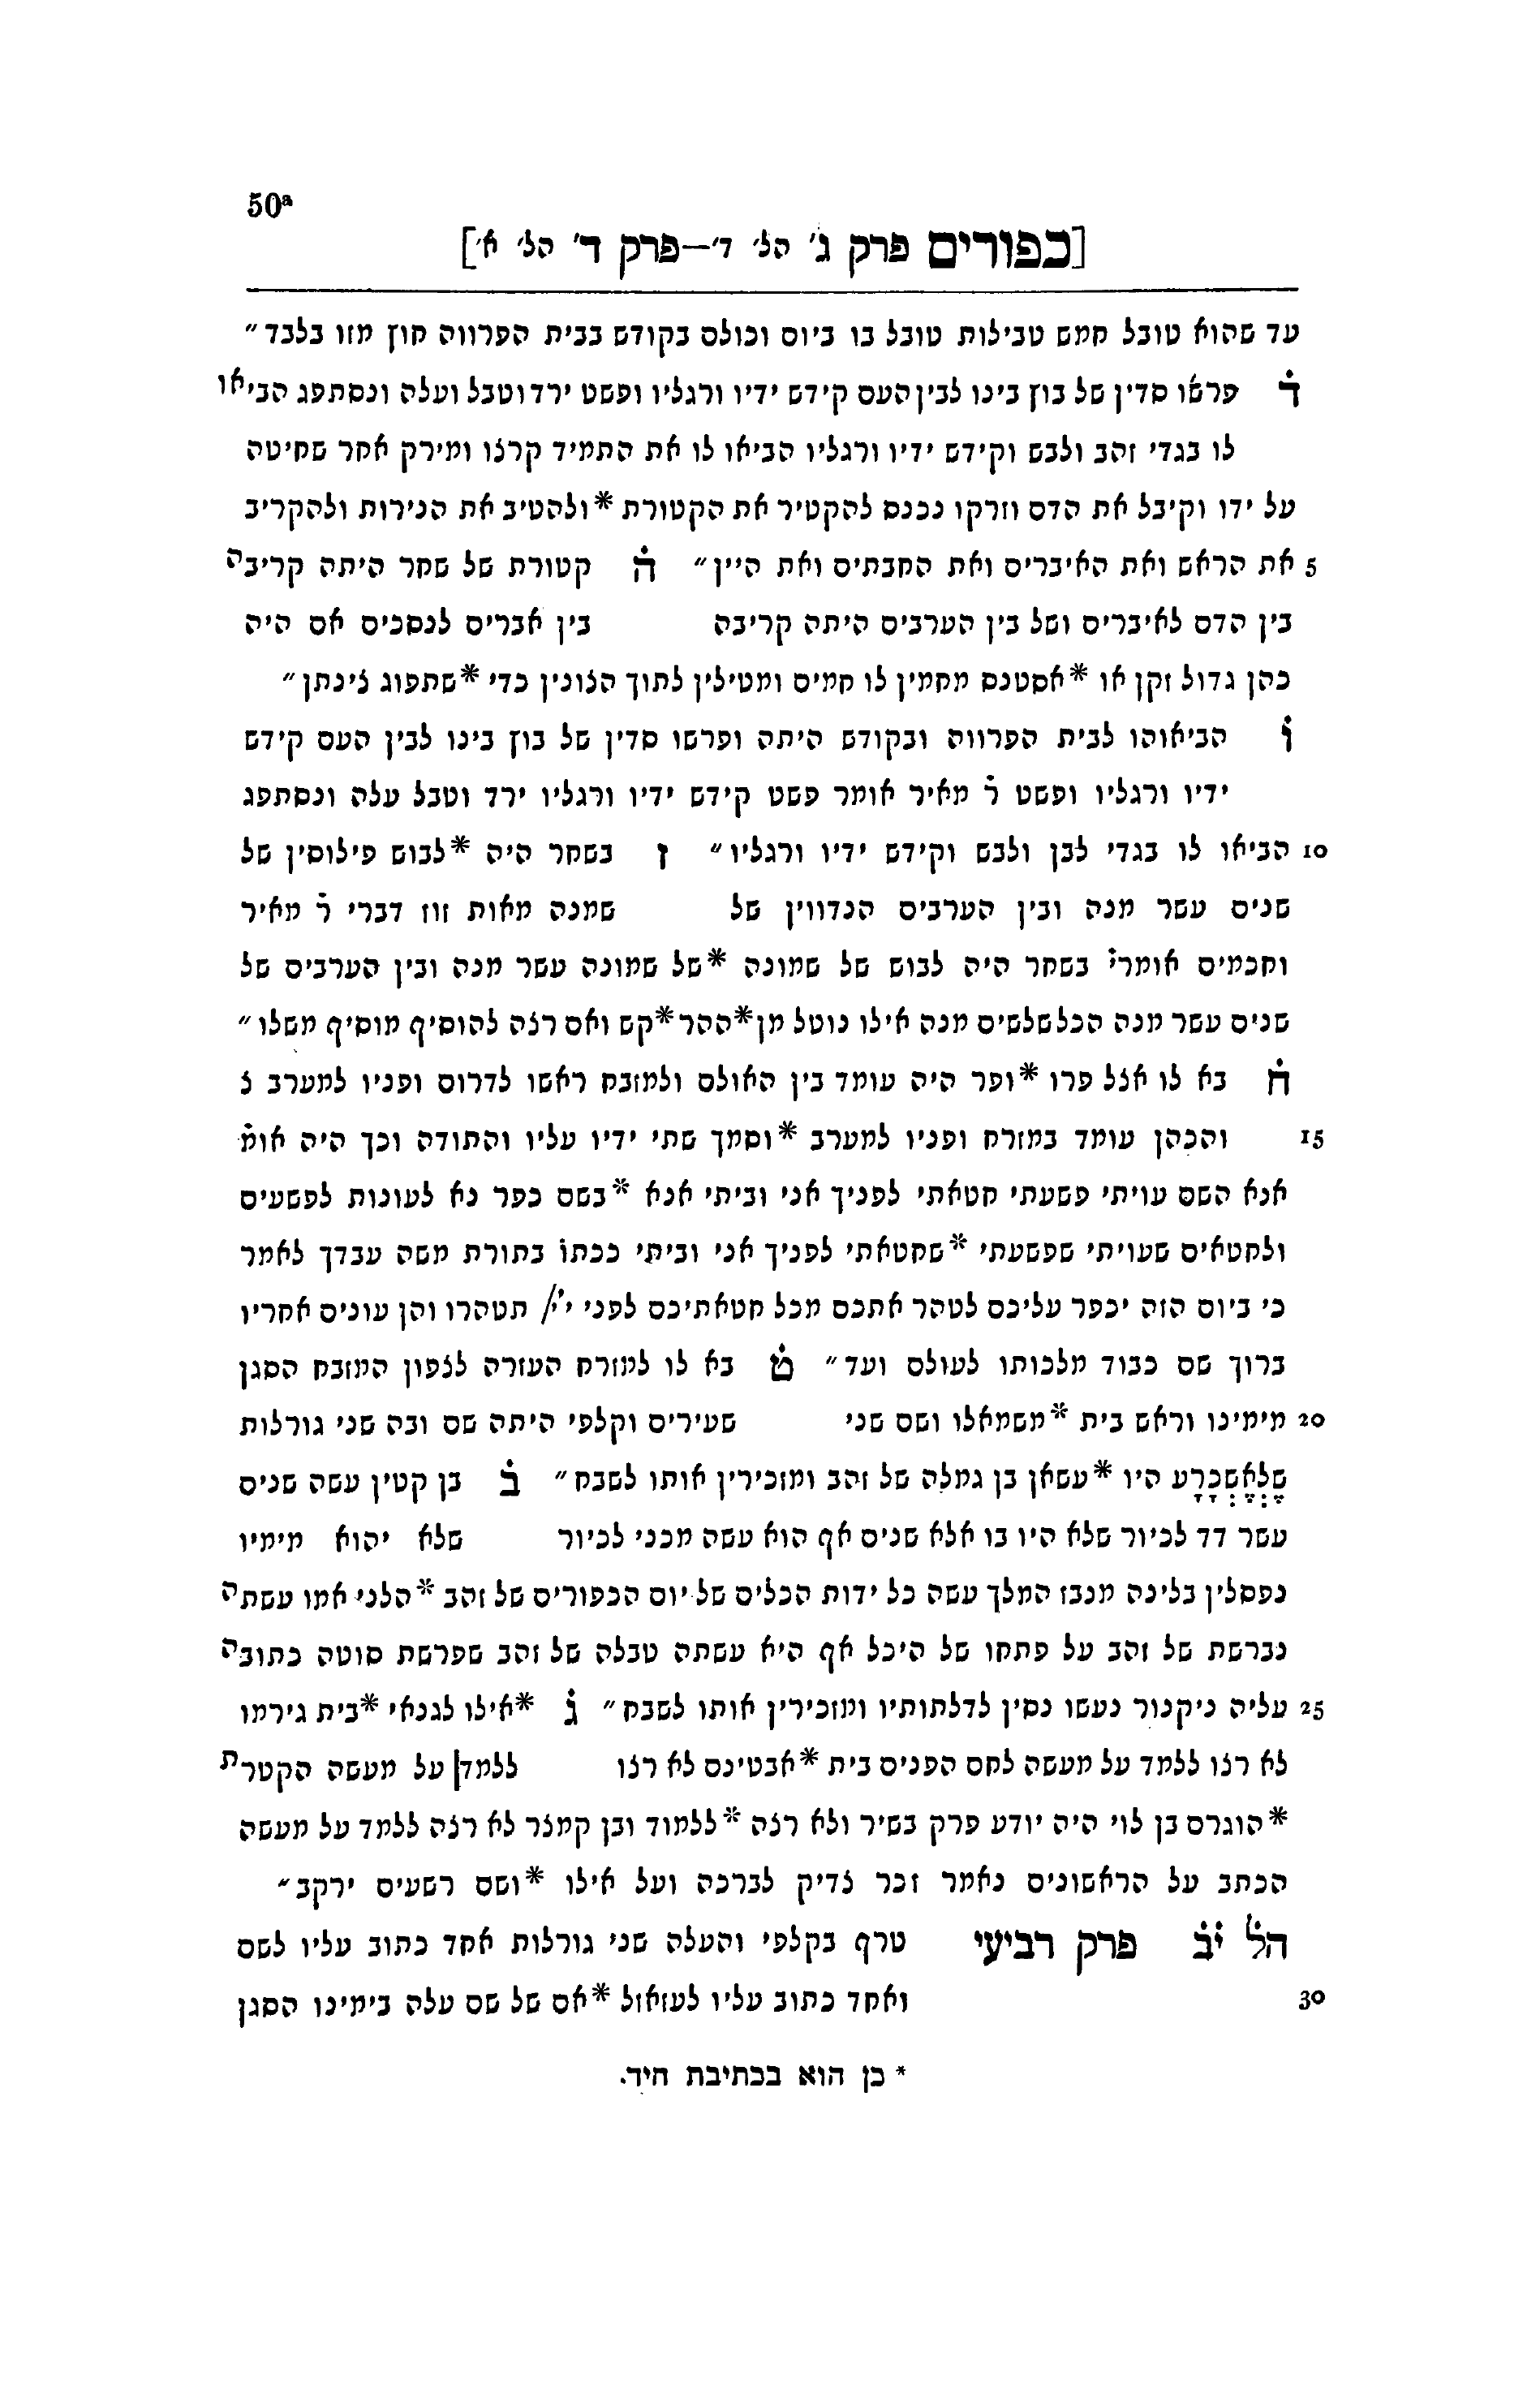 50ª
[כפורים פרק ג' הל' ד'—פרק ד' הל' א']
עד שהוא טובל חמש טבילות טובל בו ביום וכולם בקודש בבית הפרווה חוץ מזו בלבד״
ד̇ פרשו סדין של בוץ בינו לבין העם קידש ידיו ורגליו ופשט ירד וטבל ועלה ונסתפג הביאו
לו בגדי זהב ולבש וקידש ידיו ורגליו הביאו לו את התמיד קרצו ומירק אחר שחיטה
על ידו וקיבל את הדם וזרקו נכנס להקטיר את הקטורת *ולהטיב את הנירות ולהקריב
5 את הראש ואת האיברים ואת החבתים ואת היין״ ה̇ קטורת של שחר היתה קריבה
בין הדם לאיברים ושל בין הערבים היתה קריבה בין אברים לנסכים אם היה
כהן גדול זקן או *אסטנס מחמין לו חמים ומטילין לתוך הצונין כדי *שתפוג צינתן״
ו̇ הביאוהו לבית הפרווה ובקודש היתה ופרשו סדין של בוץ בינו לבין העם קידש
ידיו ורגליו ופשט ר̇ מאיר אומר פשט קידש ידיו ורגליו ירד וטבל עלה ונסתפג
10 הביאו לו בגדי לבן ולבש וקידש ידיו ורגליו״ ז בשחר היה *לבוש פילוסין של
שנים עשר מנה ובין הערבים הנדווין של שמנה מאות זוז דברי ר̇ מאיר
וחכמים אומרי̇ בשחר היה לבוש של שמונה *של שמונה עשר מנה ובין הערבים של
שנים עשר מנה הכלשלשים מנה אילו נוטל מן*ההר*קש ואם רצה להוסיף מוסיף משלו״
ח̇ בא לו אצל פרו *ופר היה עומד בין האולם ולמזבח ראשו לדרום ופניו למערב צ
15 והכהן עומד במזרח ופניו למערב *וסמך שתי ידיו עליו והתודה וכך היה אומ̇
אנא השם עויתי פשעתי חטאתי לפניך אני וביתי אנא *בשם כפר נא לעונות לפשעים
ולחטאים שעויתי שפשעתי *שחטאתי לפניך אני וביתי ככתו̇ בתורת משה עבדך לאמר
כי ביום הזה יכפר עליכם לטהר אתכם מכל חטאתיכם לפני י̇י̇/ תטהרו והן עונים אחריו
ברוך שם כבוד מלכותו לעולם ועד״ ט̇ בא לו למזרח העזרה לצפון המזבח הסגן
20 מימינו וראש בית *משמאלו ושם שני שעירים וקלפי היתה שם ובה שני גורלות
שֶׁלְאֶשְׁכְּרָעָ היו *עשאן בן גמלה של זהב ומזכירין אותו לשבח״ ב̇ בן קטין עשה שנים
עשר דד לכיור שלא היו בו אלא שנים אף הוא עשה מכני לכיור שלא יהוא מימיו
נפסלין בלינה מנבז המלך עשה כל ידות הכלים של יום הכפורים של זהב *הלני אמו עשתה
נברשת של זהב על פתחו של היכל אף היא עשתה טבלה של זהב שפרשת סוטה כתובה
25 עליה ניקנור נעשו נסין לדלתותיו ומזכירין אותו לשבח״ ג̇ *אילו לגנאי *בית גירמו
לא רצו ללמד על מעשה לחם הפנים בית *אבטינס לא רצו ללמד על מעשה הקטרת
*הוגרס בן לוי היה יודע פרק בשיר ולא רצה *ללמוד ובן קמצר לא רצה ללמד על מעשה
הכתב על הראשונים נאמר זכר צדיק לברכה ועל אילו *ושם רשעים ירקב״
הל̇ י̇ב̇ פרק רביעי טרף בקלפי והעלה שני גורלות אחד כתוב עליו לשם
30 ואחד כתוב עליו לעזאזל *אם של שם עלה בימינו הסגן
* כן הוא בכתיבת היד.